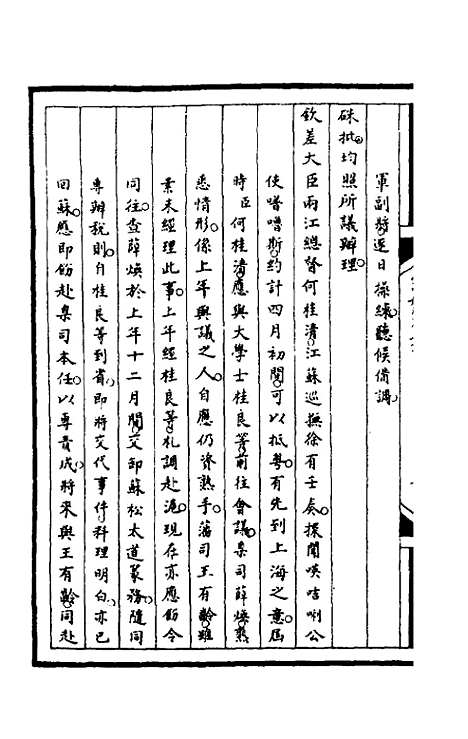 軍副將逐日操練聽候備調
硃批均照所議辦理
欽差大臣兩江總督何桂清江蘇巡撫徐有壬奏探聞嘆咭唎公
使嚕嚕斯約計四月初間可以抵粵有先到上海之意屆
時臣何桂清應與大學士桂良等前往會議臬司薛煥熟
悉情形係上年與議之人自應仍資熟手藩司王有齡雖
素未經理此事上年經桂良等札調赴滬現存亦應飭令
同往查薛煥於上年十二月間交卸蘇松太道篆務隨同
專辦稅則自桂良等到省即將交代事件料理明白亦已
回蘇應即飭赴臬司本任以專責成將來與王有齡同赴